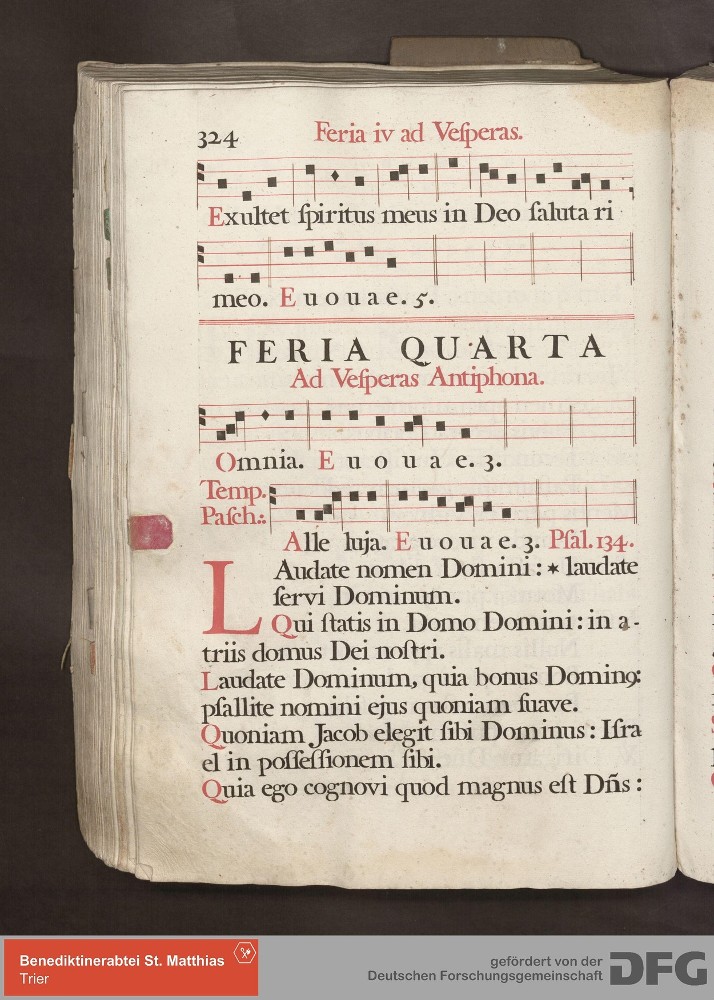 324 Feria iv ad Veſperas.
Exultet ſpiritus meus in Deo ſaluta ri
meo. E u o u a e. 5.
FERIA QUARTA
Ad Veſperas Antiphona.
Omnia. E u o u a e. 3.
Temp.
Paſch:.
Alle luja. E u o u a e. 3. Pſal. 134.
LAudate nomen Domini : * laudate
ſervi Dominum.
Qui ſtatis in Domo Domini : in a-
triis domus Dei noſtri.
Laudate Dominum, quia bonus Dominꝰ:
pſallite nomini ejus quoniam ſuave.
Quoniam Jacob elegit ſibi Dominus : Iſra
el in poſſeſſionem ſibi.
Quia ego cognovi quod magnus eſt Dñs :
Benediktinerabtei St. Matthias
Trier
gefördert von der
Deutschen Forschungsgemeinschaft
DFG